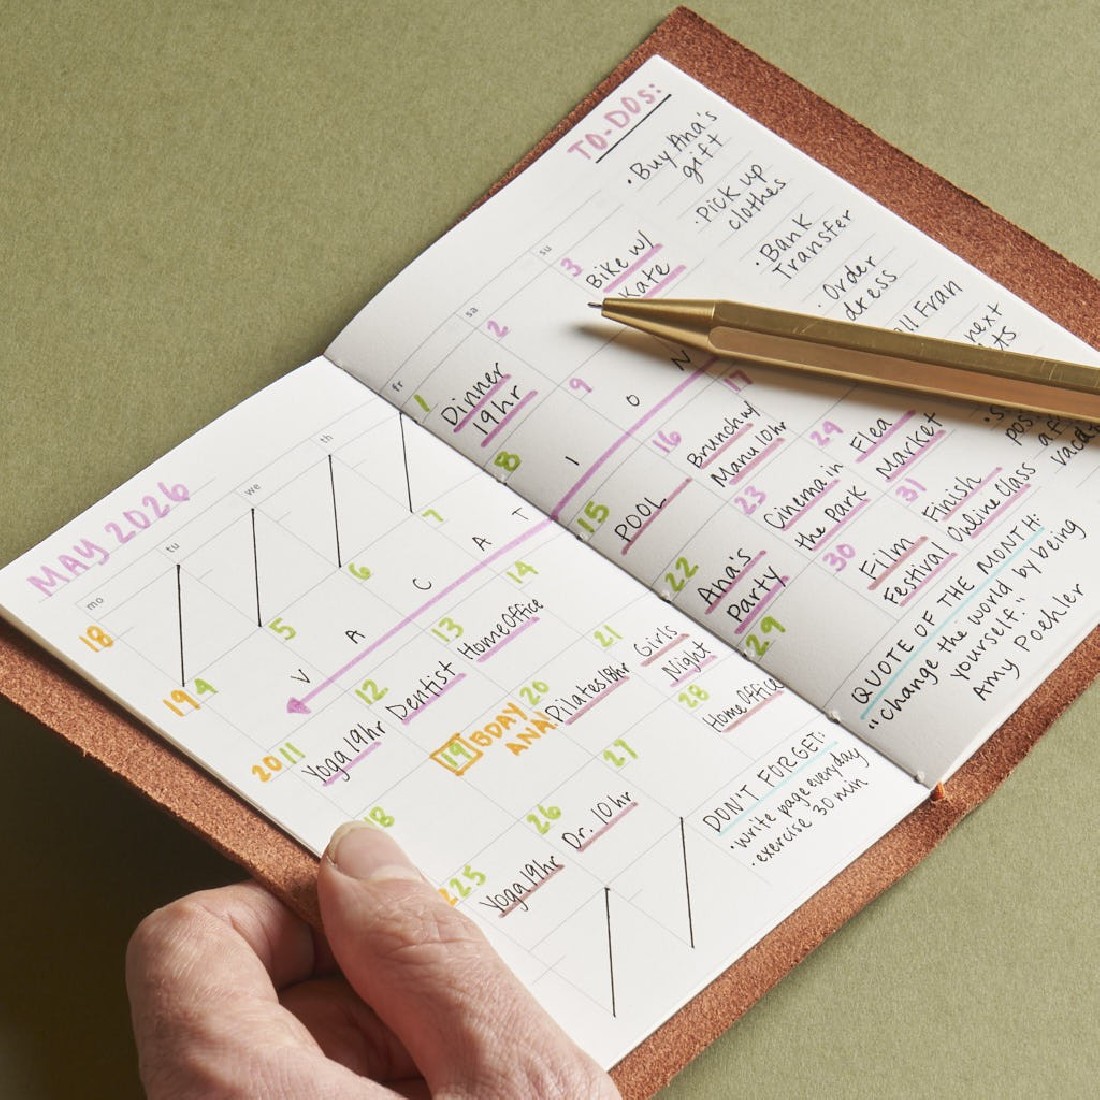 MAY 2026
mo
tu
we
th
fr
sa
su
18
1
2
Dinner
19hr
3
Bike w/
Kate
19
4
5
6
7
8
9
V A C A T I O N
20
11
Yoga 19hr
12
Dentist
13
Home Office
14
15
POOL
16
Brunch w/
Manu 10hr
17
18
19
BDAY
ANA!
20
Pilates 18hr
21
Girls
Night
22
Ana's
Party
23
Cinema in
the park
24
Flea
Market
25
Yoga 19hr
26
Dr. 10hr
27
28
Home Office
29
30
Film
Festival
31
Finish
Online Class
DON'T FORGET:
· write page everyday
· exercise 30 min
TO-DOS:
· Buy Ana's
gift
· Pick up
clothes
· Bank
Transfer
· Order
dress
Fran
next
QUOTE OF THE MONTH:
"change the world by being
yourself."
Amy Poehler